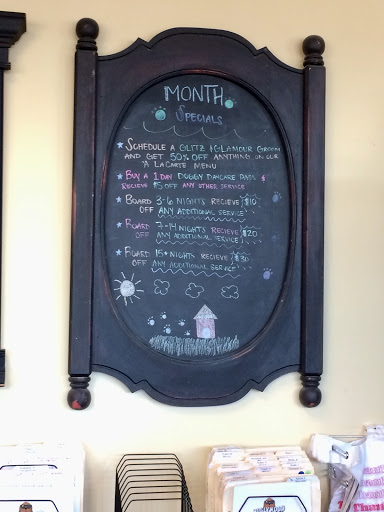 MONTH
SPECIALS
SCHEDULE A GLITZ & GLAMOUR GROOM
AND GET 50% OFF ANYTHING ON OUR
A LACARTE MENU
BUY A 1 DAY DOGGY DAYCARE PASS &
RECIEVE $5 OFF ANY OTHER SERVICE
BOARD 3-6 NIGHTS RECIEVE $10
OFF ANY ADDITIONAL SERVICE
BOARD 7-14 NIGHTS RECIEVE $20
OFF ANY ADDITIONAL SERVICE
BOARD 15+ NIGHTS RECIEVE $30
OFF ANY ADDITIONAL SERVICE